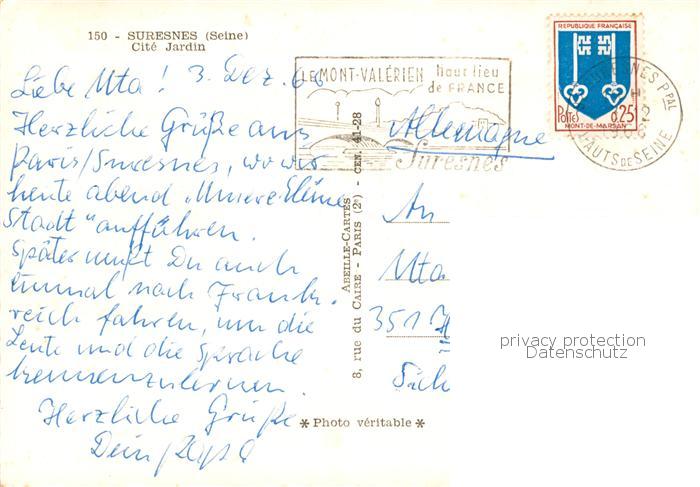 150 - SURESNES (Seine)
Cité Jardin
Liebe Uta! 3. Dez. 66
Herzliche Grüße aus
Paris/Suresnes, wo wir
heute abend „Unsere kleine
Stadt" aufführen.
Später mußt Du auch
einmal nach Frank-
reich fahren, um die
Leute und die Sprache
kennenzulernen.
Herzliche Grüße
Dein
ABEILLE-CARTES
8, rue du CAIRE - PARIS (2e) - CEN. 41-28
*Photo véritable*
LE MONT-VALÉRIEN haut lieu
de FRANCE
Suresnes
REPUBLIQUE FRANÇAISE
Postes 0,25
MONT-DE-MARSAN
SURESNES PPAL
HAUTS DE SEINE
Allemagne
An
Uta
351
privacy protection
Datenschutz